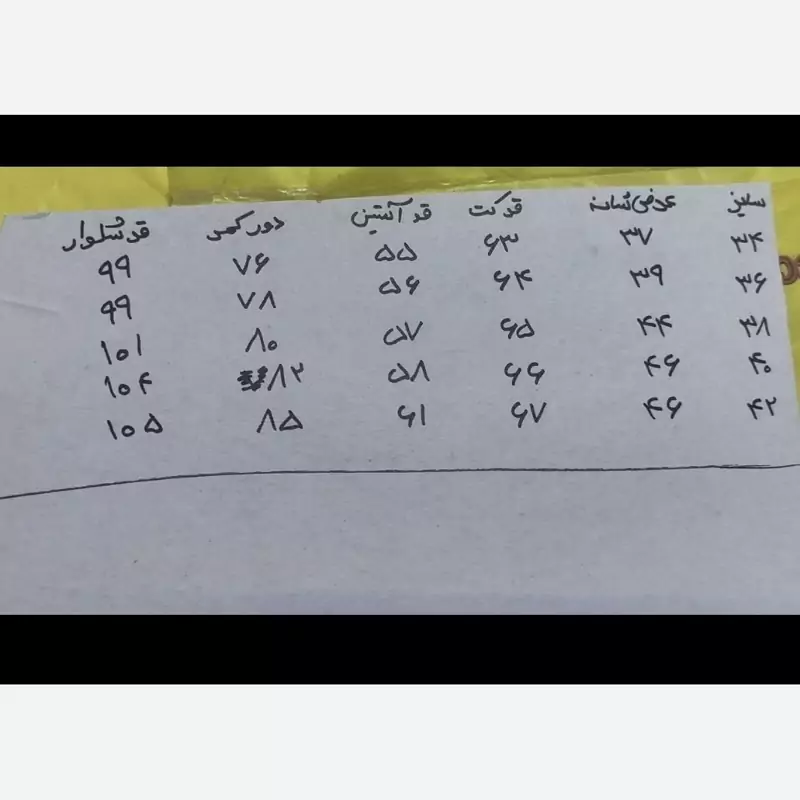 سایز عرض شانه قد کت قد آستین دور کمر قد شلوار
۳۴ ۳۷ ۶۳ ۵۵ ۷۶ ۹۹
۳۶ ۳۹ ۶۴ ۵۶ ۷۸ ۹۹
۳۸ ۴۴ ۶۵ ۵۷ ۸۰ ۱۰۱
۴۰ ۴۶ ۶۶ ۵۸ ۸۲ ۱۰۴
۴۲ ۴۶ ۶۷ ۶۱ ۸۵ ۱۰۵